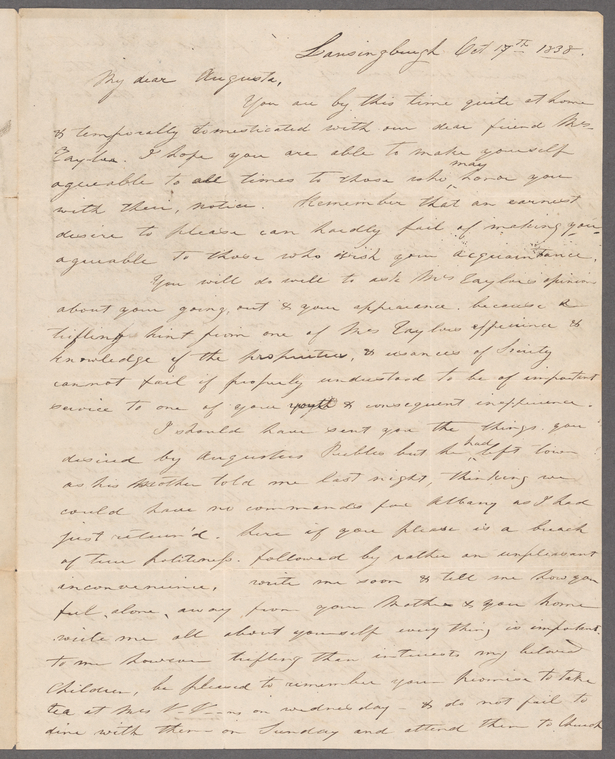 Lansingburgh Oct 17th 1838.
My dear Augusta,
You are by this time quite at home
& temporally domesticated with our dear friend Mrs
Taylor. I hope you are able to make yourself
agreeable to all times to those who may honor you
with their notice. Remember that an earnest
desire to please can hardly fail of making you
agreeable to those who wish your acquaintance.
You will do well to ask Mrs Taylors opinion
about your going out & your appearance. because a
trifling hint from one of Mrs Taylors experience &
knowledge of the proprieties, & usances of Society
cannot fail if properly understood to be of important
service to one of your youth & consequent inexperience.
I should have sent you the things you
desired by Augustus Peebles but he had left town
as his Mother told me last night, thinking we
could have no commands for Albany as I had
just return'd. here if you please is a breach
of true politeness. followed by rather an unpleasant
inconvenience. write me soon & tell me how you
feel, alone, away from your Mother & your home
write me all about yourself every thing is important
to me however trifling that interests my beloved
Children, be pleased to remember your promise to take
tea at Mrs V. V on wednesday - & do not fail to
dine with them on Sunday and attend them to Church